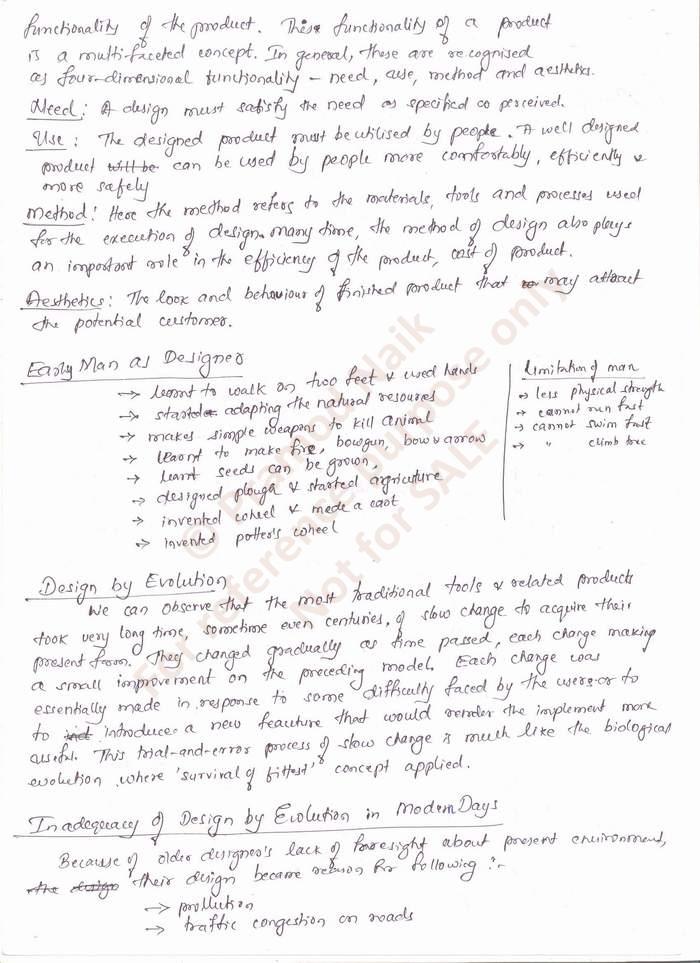 functionality of the product. These functionality of a product
is a multi-faceted concept. In general, these are recognised
as four-dimensional functionality – need, use, method and aesthetics.
Need: A design must satisfy the need as specified or perceived.
Use: The designed product must be utilised by people. A well designed
product will be can be used by people more comfortably, efficiently &
more safely
Method: Here the method refers to the materials, tools and processes used
for the execution of design. many time, the method of design also plays
an important role in the efficiency of the product, cost of product.
Aesthetics: The look and behaviour of finished product that may attract
the potential customer.
Early Man as Designer
→ learnt to walk on two feet & used hands
→ started adapting the natural resoures
→ makes simple weapons to kill animal
→ learnt to make fire, bowgun, bow & arrow
→ learnt seeds can be grown,
→ designed plough & started agriculture
→ invented wheel & made a cart
→ invented potter's wheel
Limitation of man
→ less physical strength
→ cannot run fast
→ cannot swim fast
→ " climb tree
Design by Evolution
We can observe that the most traditional tools & related products
took very long time, sometime even centuries, of slow change to acquire their
present form. They changed gradually as time passed, each change making
a small improvement on the preceding model. Each change was
essentially made in response to some difficulty faced by the users or to
to introduce a new feauture that would render the implement more
useful. This trial-and-error process of slow change is much like the biological
evolution where 'survival of fittest' concept applied.
Inadequacy of Design by Evolution in Modern Days
Because of older designer's lack of foresight about present environment,
the design their design became reason for following :-
→ pollution
→ traffic congestion on roads
© Pramod Naik
For reference purpose only
Not for SALE